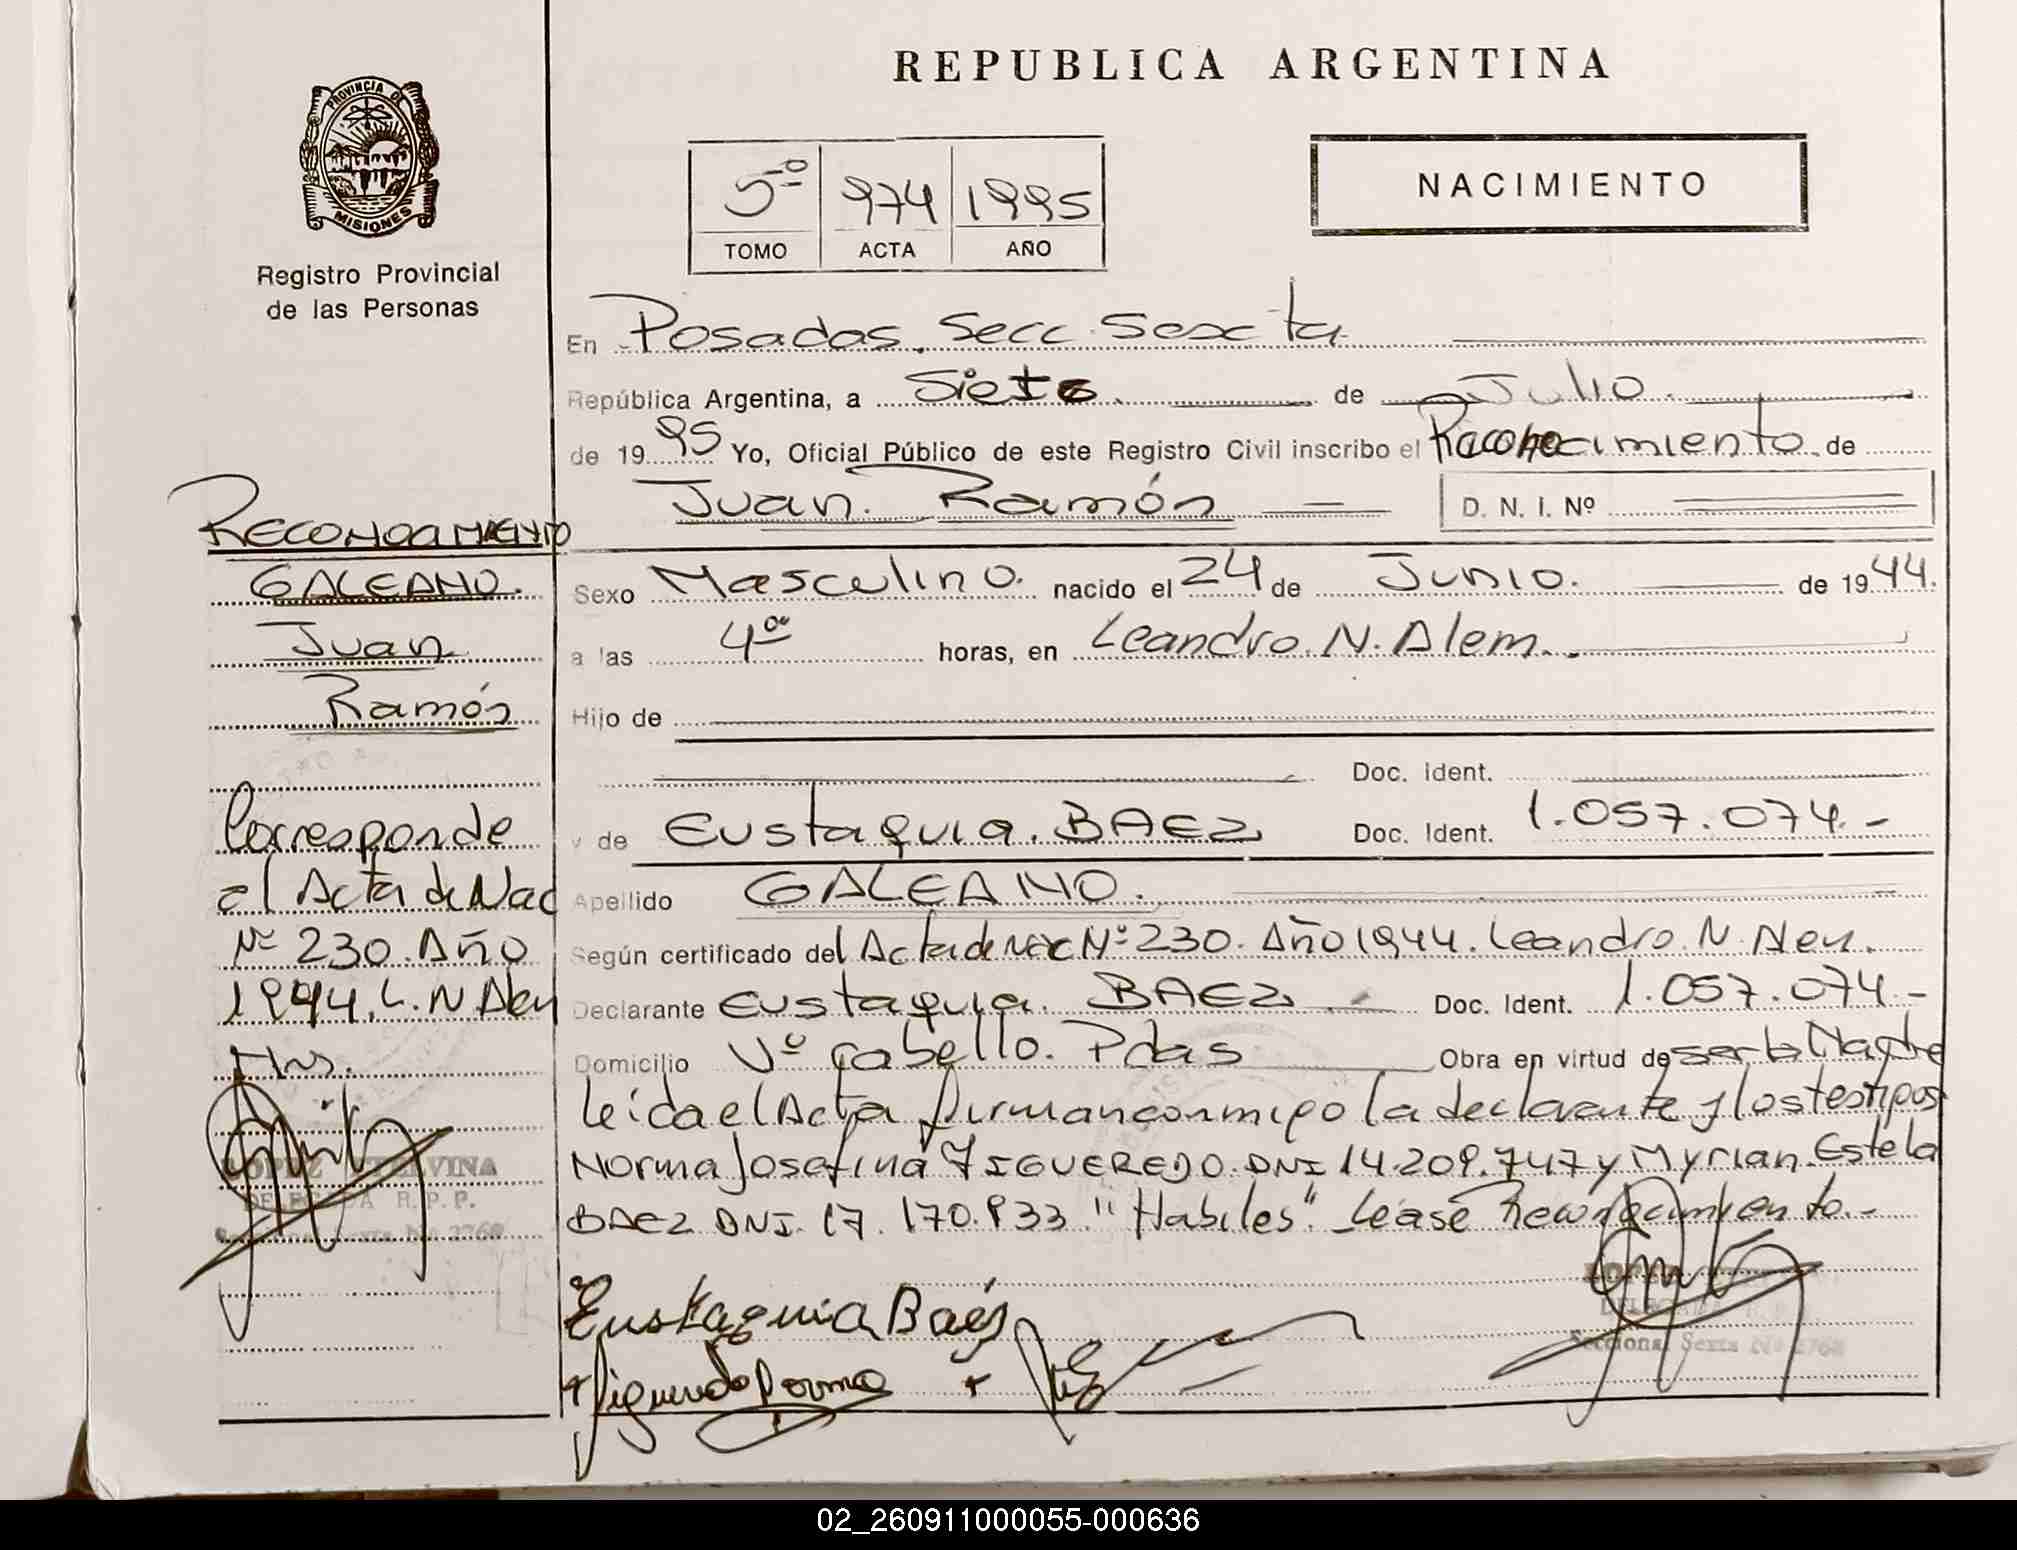 REPUBLICA ARGENTINA
PROVINCIA DE
MISIONES
Registro Provincial
de las Personas
5º 974 1995
TOMO ACTA AÑO
NACIMIENTO
En Posadas. Secc. Sexta
República Argentina, a Siete de Julio
de 1995 Yo, Oficial Público de este Registro Civil inscribo el Reconocimiento de
Juan Ramón D. N. I. Nº
Sexo Masculino. nacido el 24 de Junio. de 1944.
a las 4ºº horas, en Leandro. N. Alem.
Hijo de
Doc. Ident.
y de Eustaquia. BAEZ Doc. Ident. 1.057.074.-
Apellido GALEANO.
Según certificado del Acta de Nac Nº 230. Año 1944. Leandro. N. Alem.
Declarante Eustaquia. BAEZ Doc. Ident. 1.057.074-
Domicilio Vº Cabello. Pdas Obra en virtud de ser la Madre
leida el Acta firman conmigo la declarante y los testigos
Norma Josefina FIGUEREDO. DNI 14.209.747 y Myrian. Estela
BAEZ DNI. 17.170.933 "Habiles". Léase Reconocimiento.-
Eustaquia Baéz
Figueredo Norma
LOPEZ
DELEGADA R. P. P.
Seccional Sexta Nº 2768
RECONOCIMIENTO
GALEANO.
Juan
Ramón
Corresponde
al Acta de Nac
Nº 230. Año
1944. L. N Alem
Mns.
LOPEZ ETELVINA
DELEGADA R. P. P.
Nº 2768
02_260911000055-000636